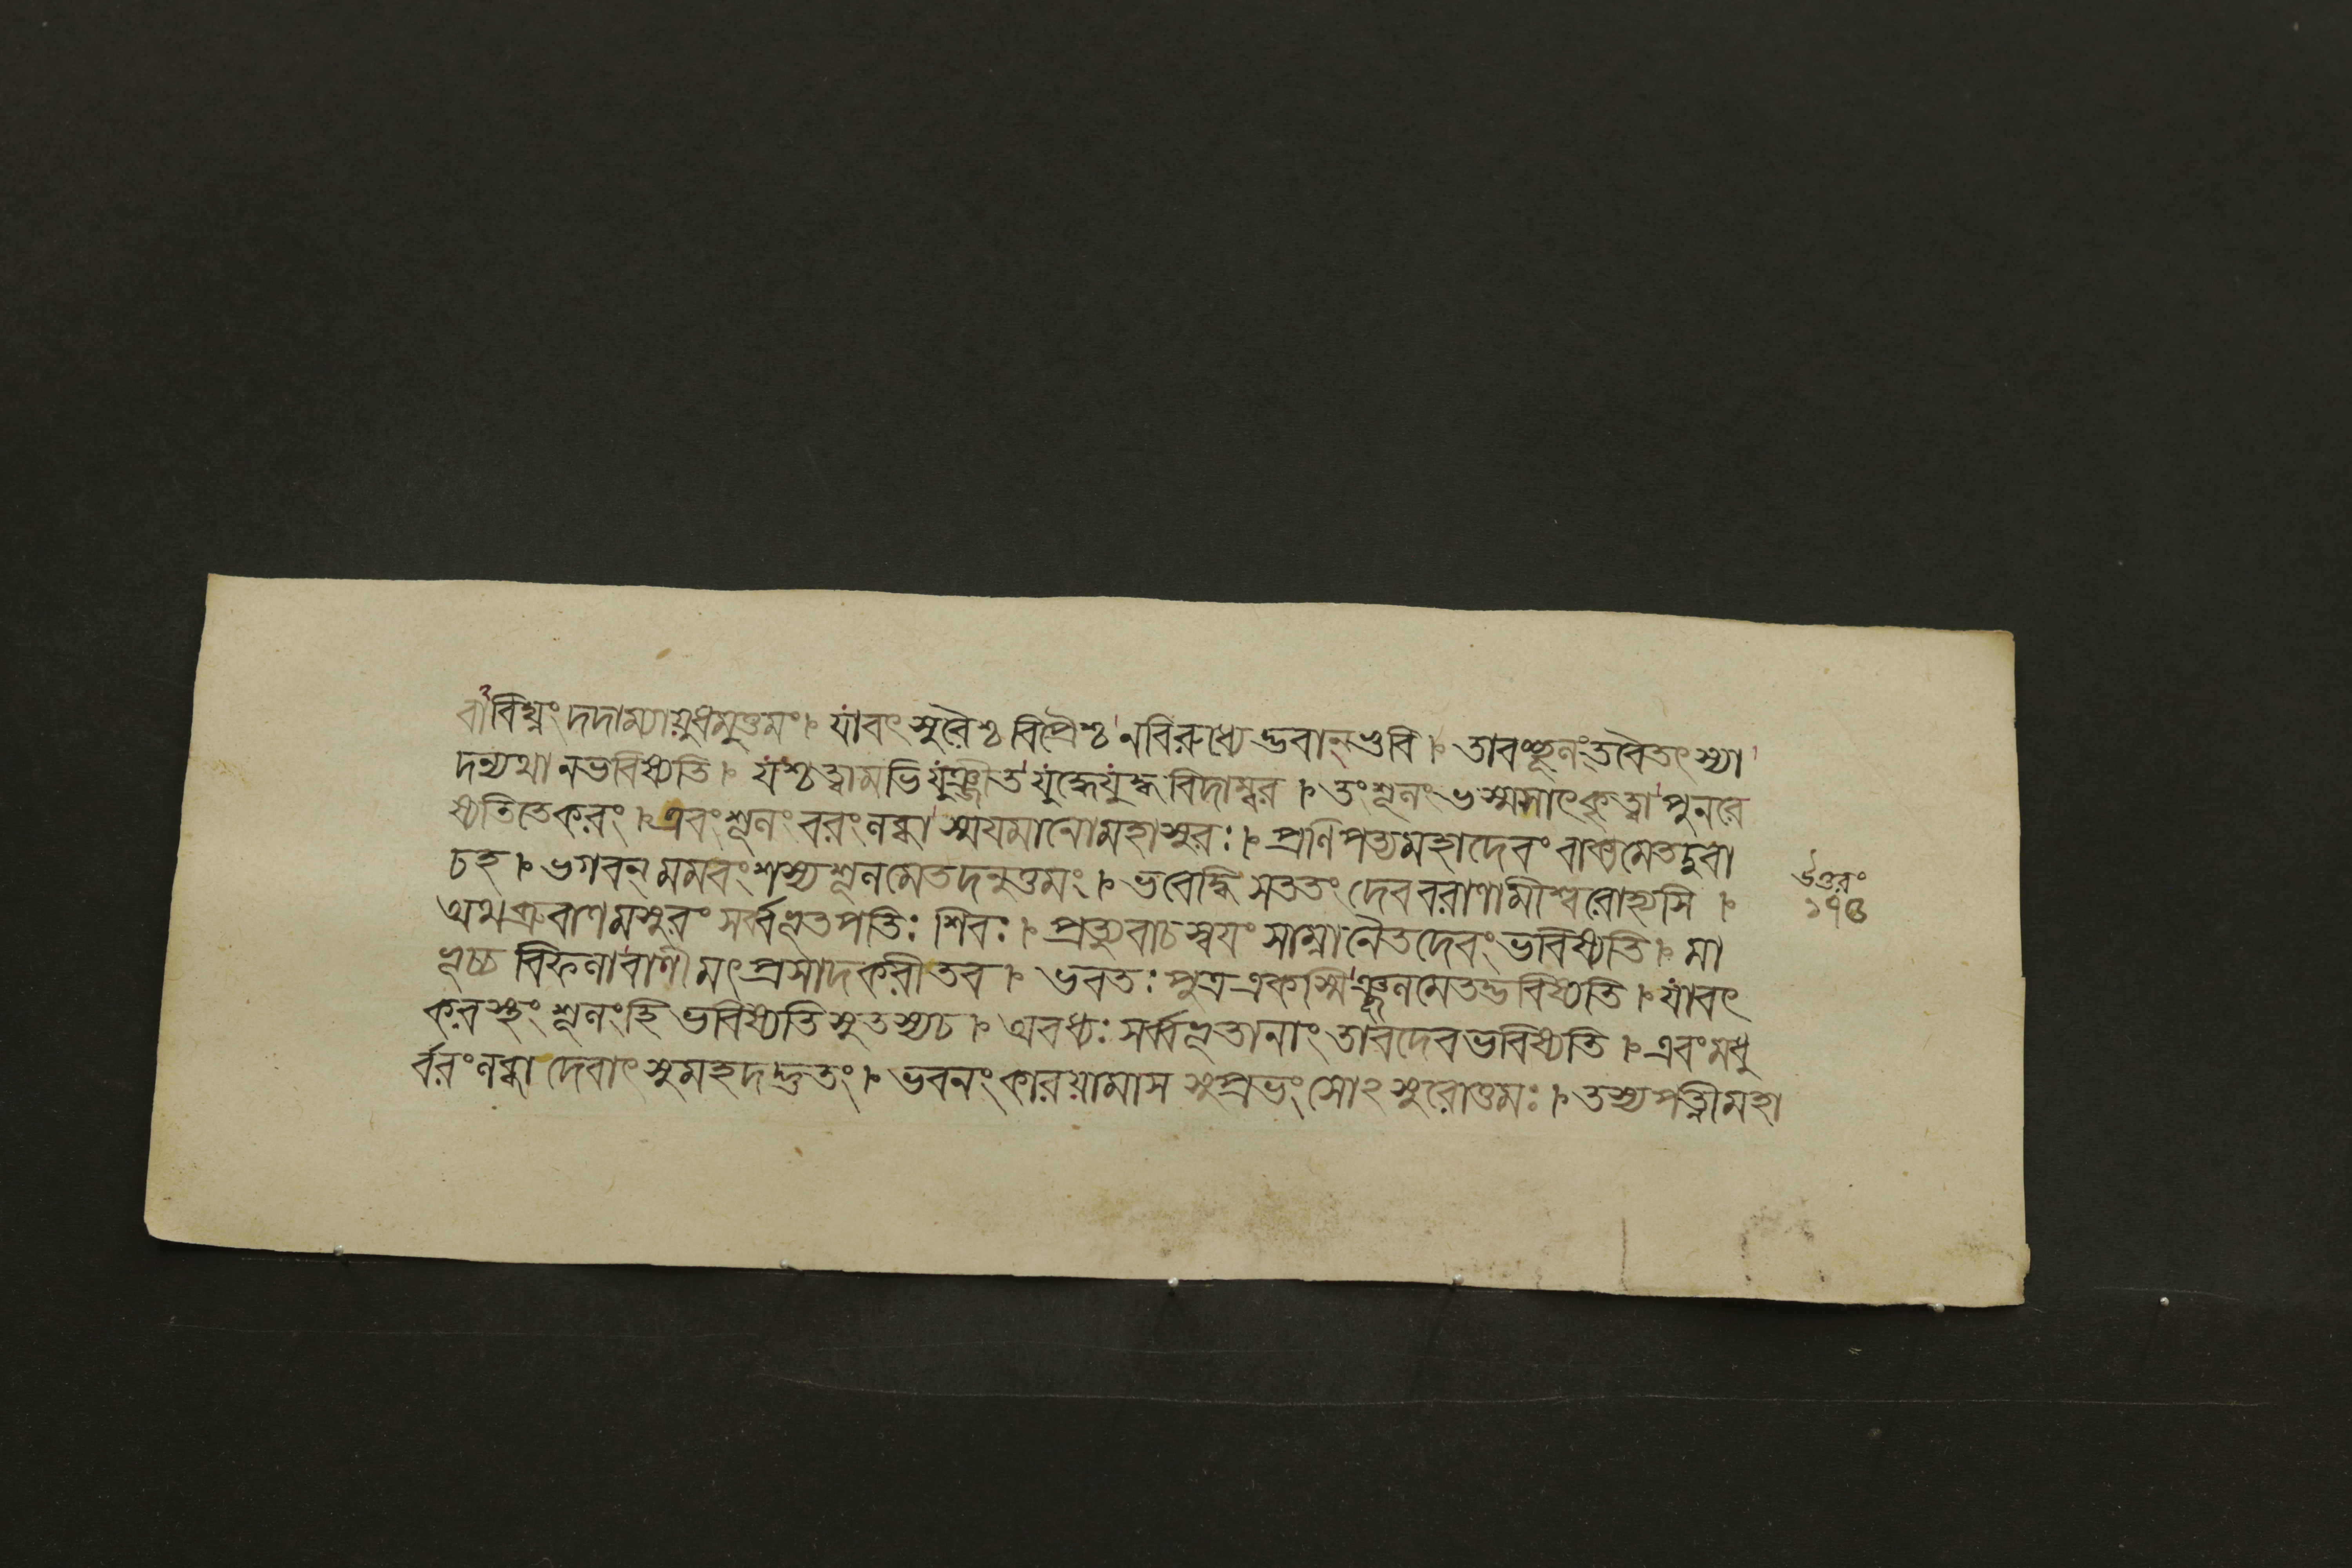 বাঁবিষ্নং দদাম্যায়ুধমুত্তমং। যাবৎ সুরৈশ্চ বিপ্রৈশ্চ ন বিরুধ্যেদ্ভবান্ ভুবি। তাবচ্ছূলং তবৈতৎ স্যা
দন্যথা ন ভবিষ্যতি। যশ্চ ত্বামভিযুঞ্জীত যুদ্ধে যুদ্ধ বিদাম্বর। তং শূলং ভস্মসাৎ কৃত্বা পুনরে
ষ্যতি তে করং। এবং শূলং বরং লব্ধা স্ময়মানো মহাসুরঃ। প্রণিপত্য মহাদেবং বাক্যমেতদুবা
চ হ। ভগবন্ মম বংশস্য শূলমেতদনুত্তমং। ভবেদ্ধি সততং দেব বরাণামীশ্বরোহ্যসি।
অথ ব্রুবাণমসুরং সর্ব্বভূতপতিঃ শিবঃ। প্রত্যুবাচ স্বয়ং সাম্না নৈতদেবং ভবিষ্যতি। মা
ভূচ্চ বিফলা বাণী মৎ প্রসাদকরী তব। ভবতঃ পুত্র একস্মিঞ্ছূলমেতদ্ভবিষ্যতি। যাবৎ
করস্থং শূলং হি ভবিষ্যতি সুতস্য চ। অবধ্যঃ সর্ব্বভূতানাং তাবদেব ভবিষ্যতি। এবং মধু
র্ব্বরং লব্ধা দেবাৎ সুমহদদ্ভুতং। ভবনং কারয়ামাস সুপ্রভং সোঽসুরোত্তমঃ। তস্য পত্নী মহা
উত্তরং
১৭৫